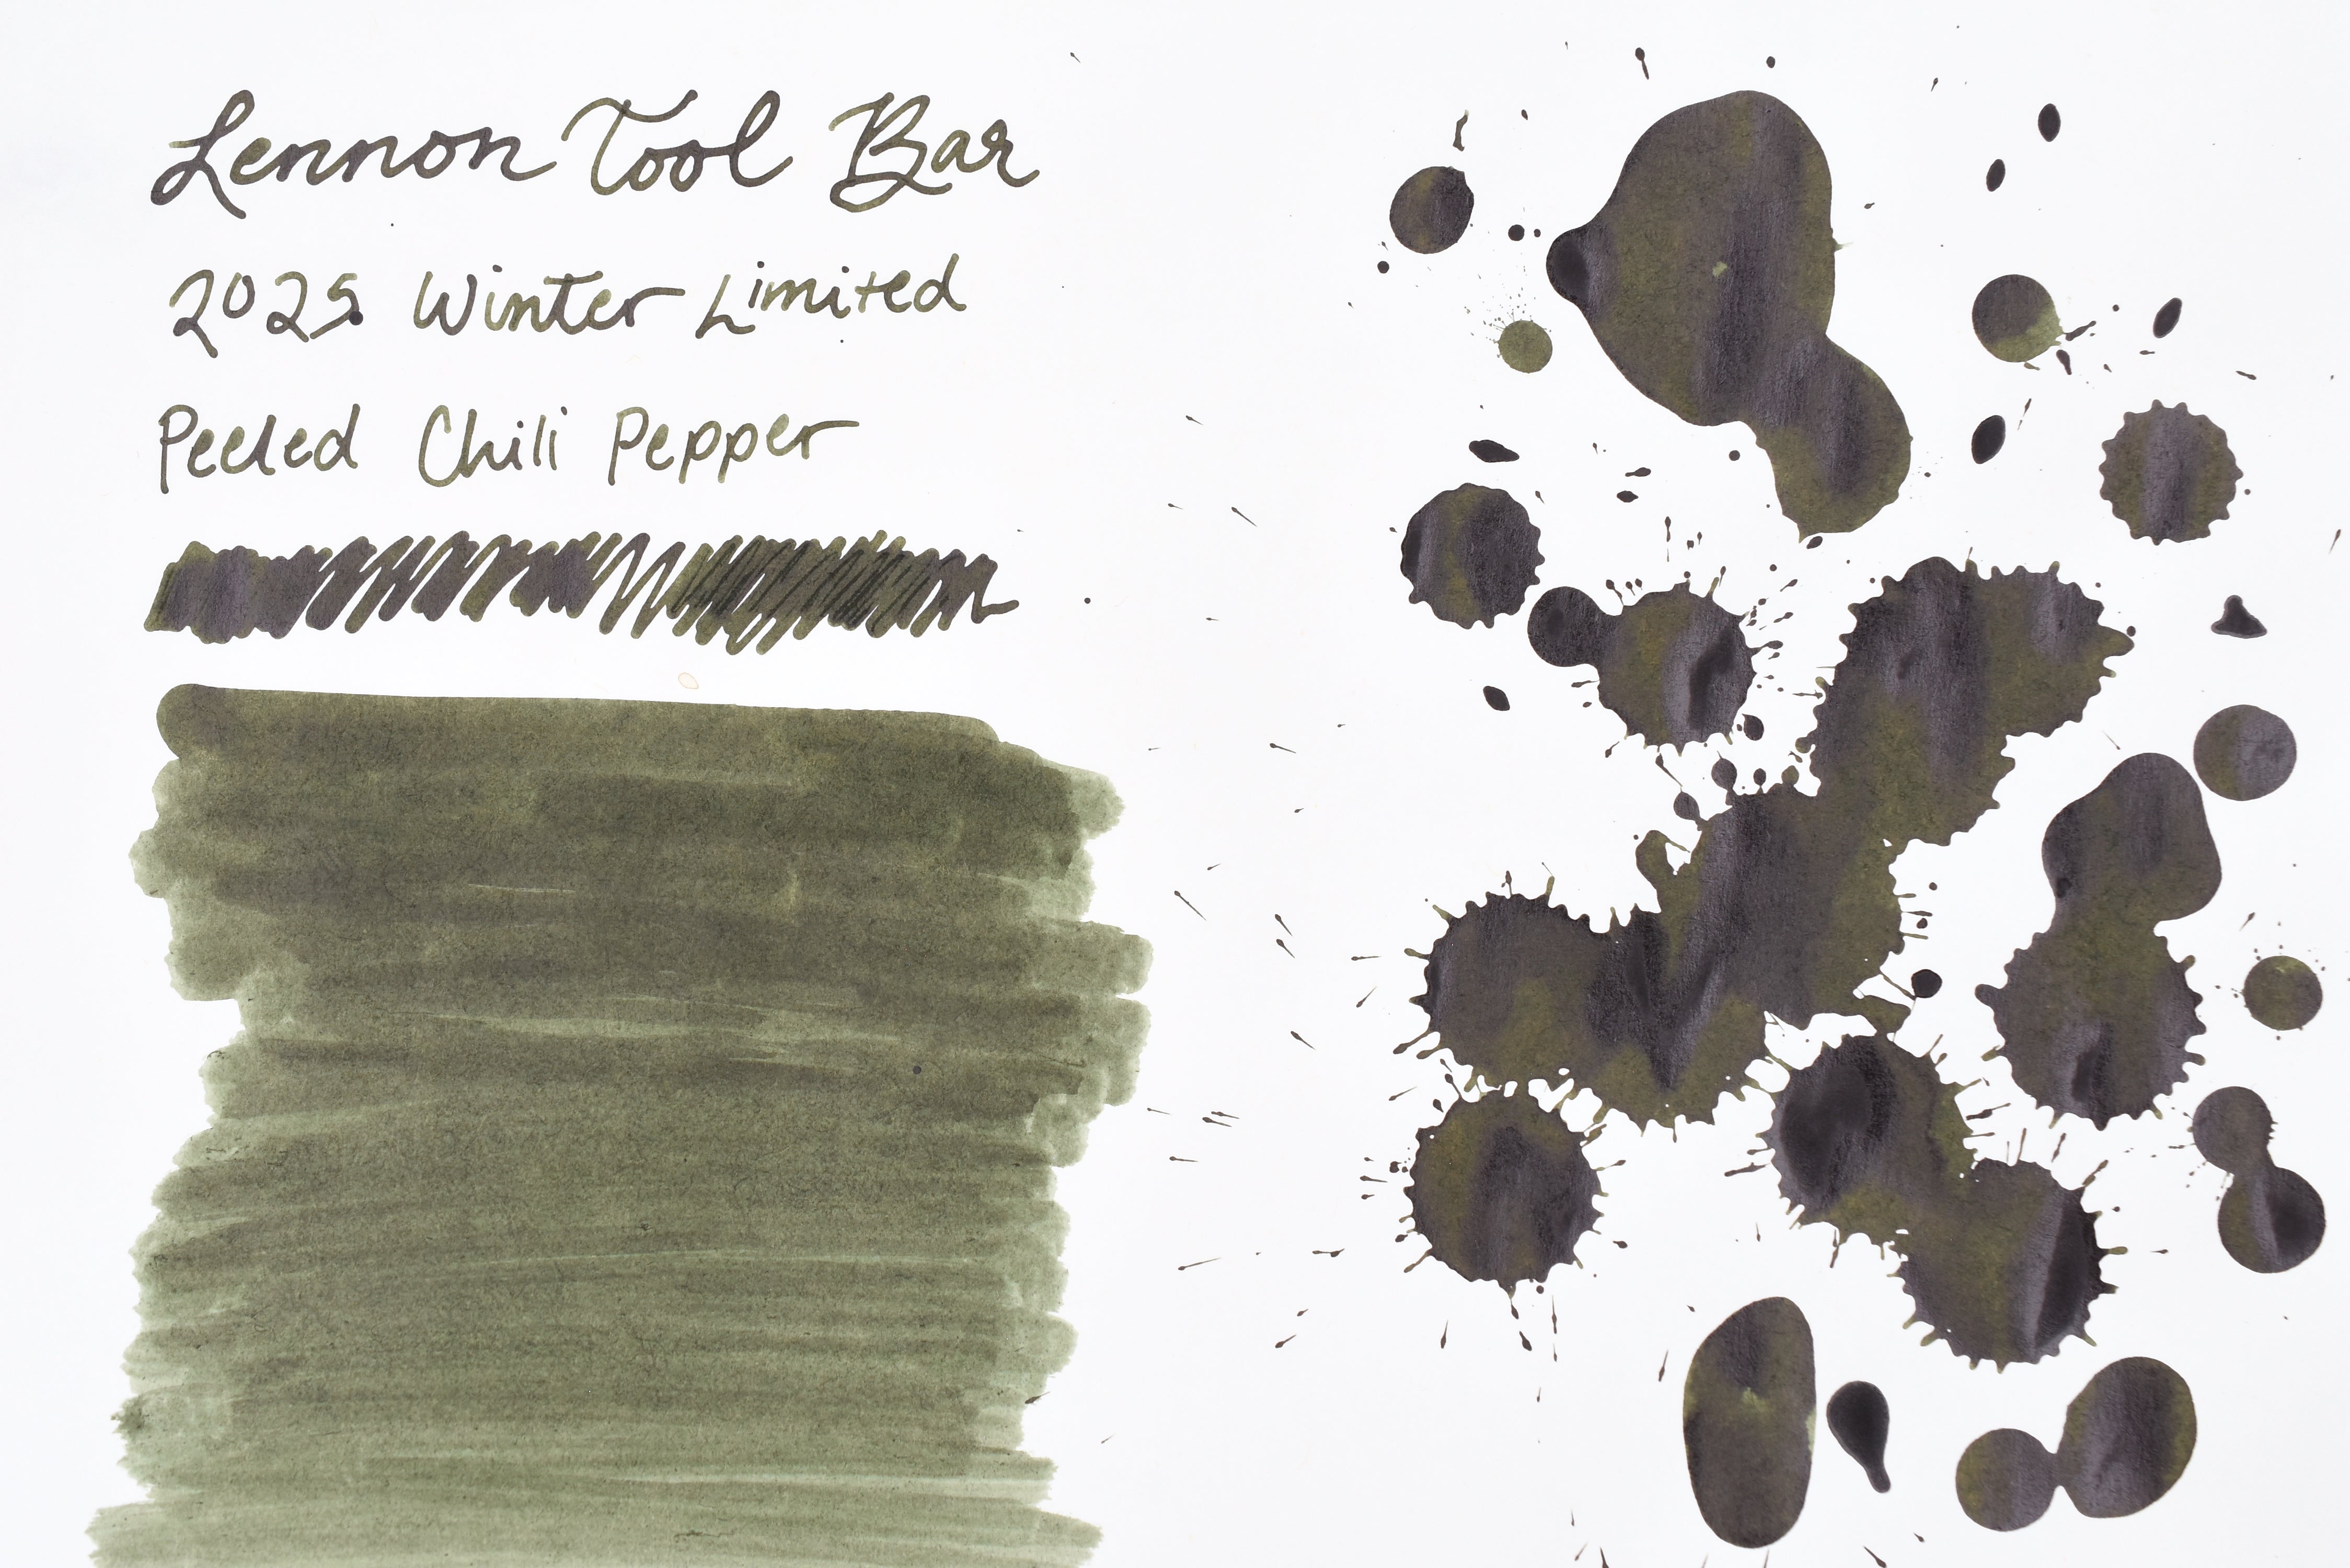 Lennon Tool Bar
2025 Winter Limited
Peeled Chili Pepper